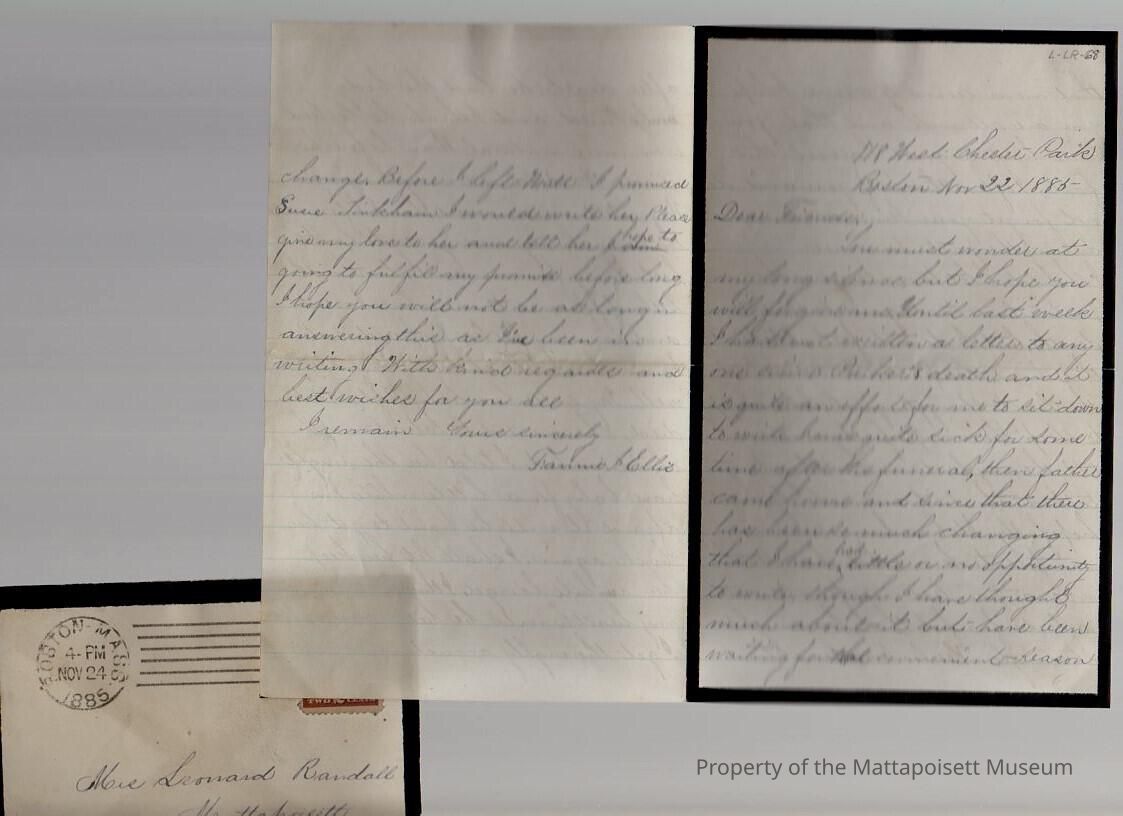 L-LR-68
118 West Chester Park
Boston Nov 22 1885
Dear Friends,
You must wonder at
my long silence, but I hope you
will forgive me. Until last week
I had not written a letter to any
one since Parker's death and it
is quite an effort for me to sit down
to write. quite sick for some
time after the funeral, then father
came home and since that there
has been so much changing
that I have had little or no opportunity
to write, though I have thought
much about it but have been
waiting for that convenient season
change. Before I left Matt I promised
Susie Tinkham I would write her. Please
give my love to her and tell her I hope to
going to fulfil my promise before long
I hope you will not be as long in
answering this as I've been in
writing. With kind regards and
best wishes for you all
I remain Yours sincerely
Fannie Ellis
BOSTON-MASS.
4-PM
NOV 24
1885
TWO CENTS
Mrs Leonard Randall
Mattapoisett
Property of the Mattapoisett Museum